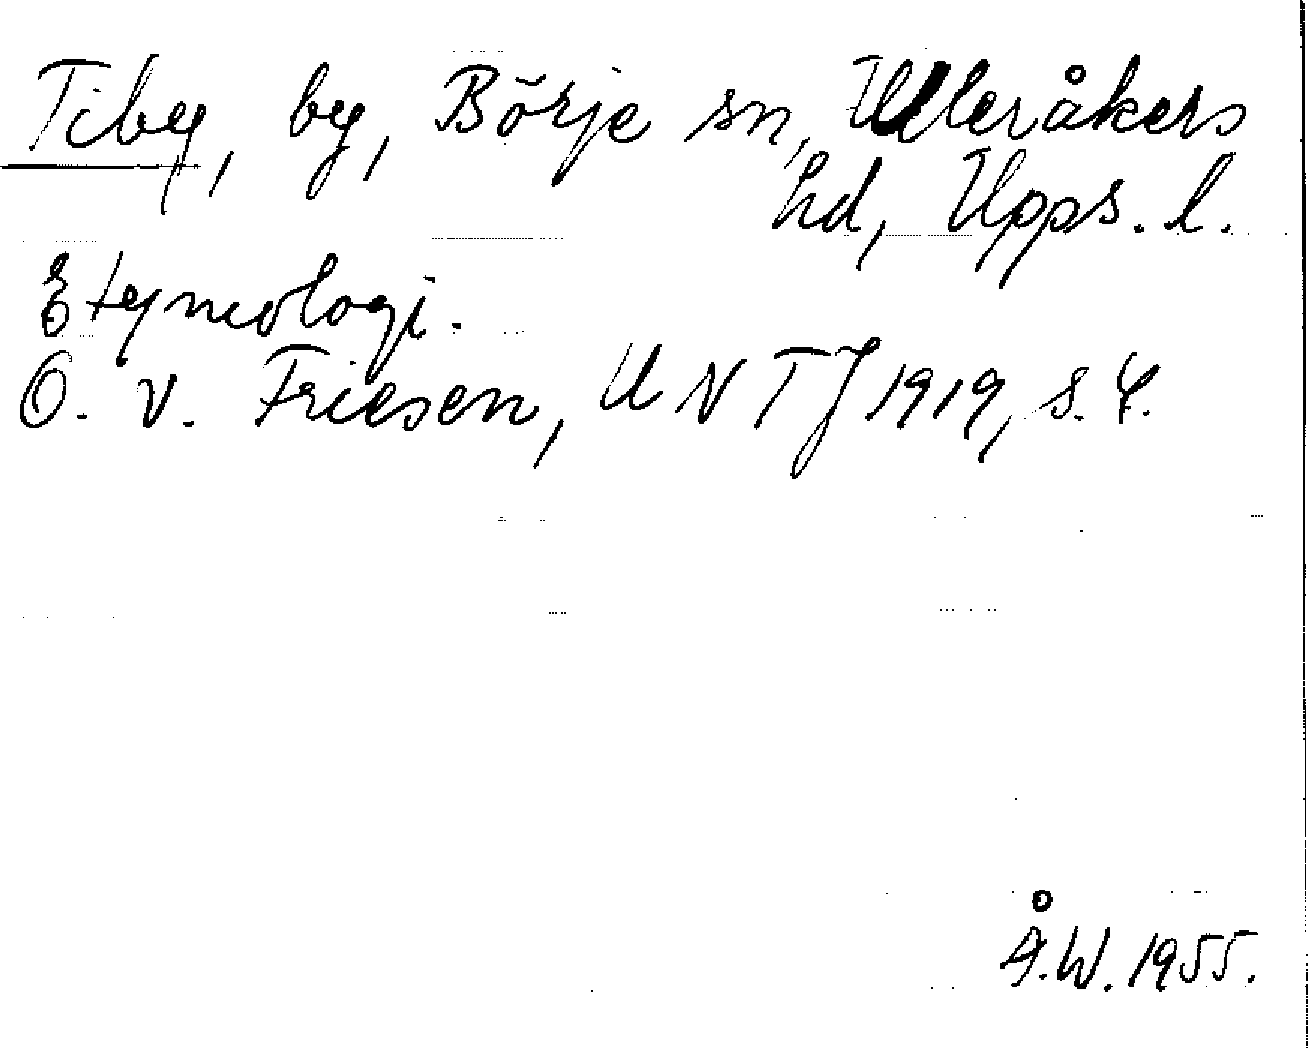 Tiby, by, Börje sn, Ulleråkers
hd, Upps. l.
Etymologi.
O. v. Friesen, UNTJ 1919, s. 4.
Å.W. 1955.